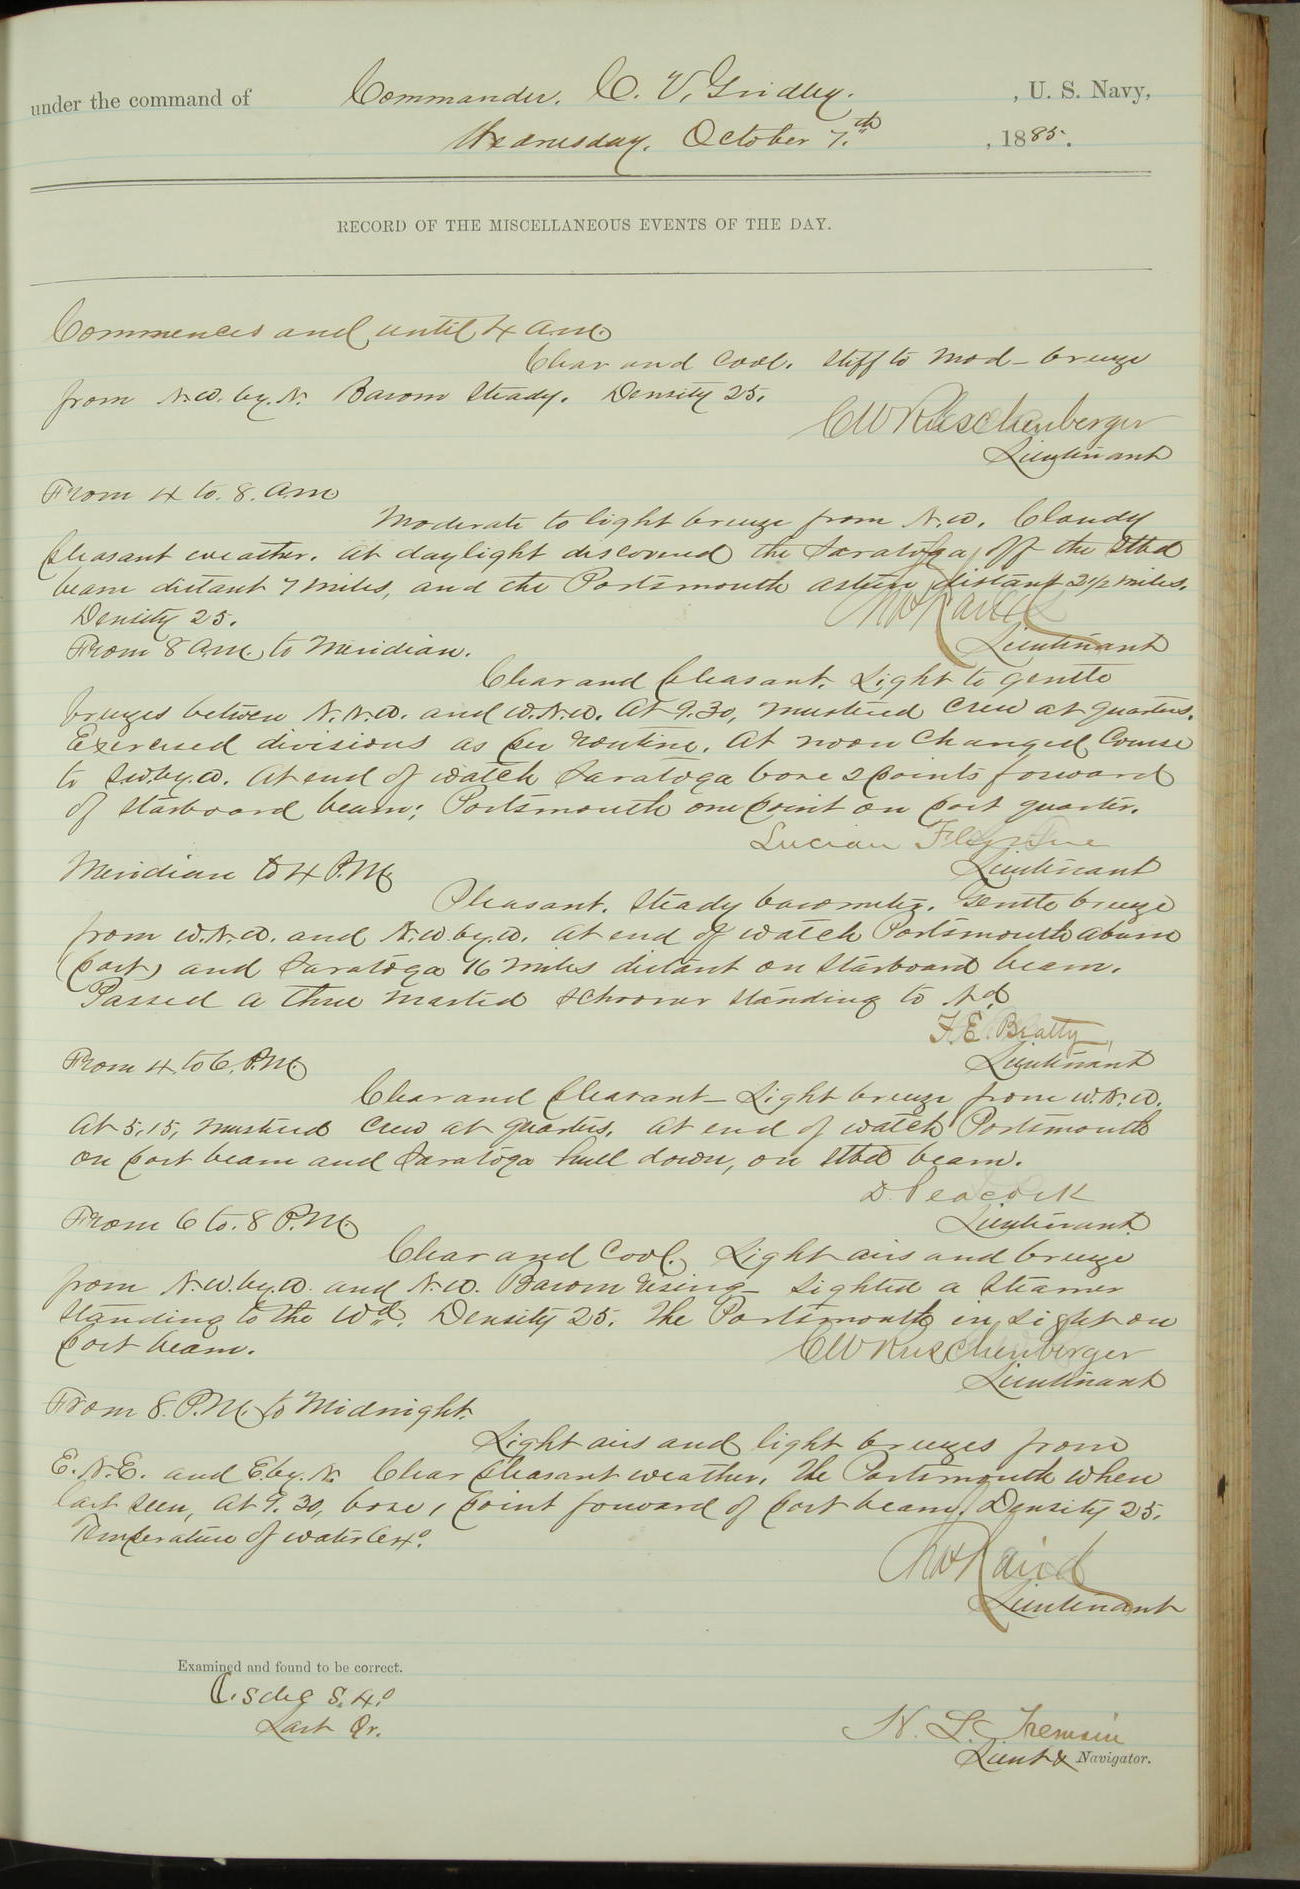 under the command of Commander. C. V. Gridley. , U. S. Navy,
Wednesday, October 7.th , 1885.
RECORD OF THE MISCELLANEOUS EVENTS OF THE DAY.
Commences and until 4 a.m.
Clear and cool. Stiff to mod- breeze
from N.W. by N. Barom steady. Density 25.
C W Ruschenberger
Lieutenant
From 4 to 8. a.m
Moderate to light breeze from N.W. Cloudy
pleasant weather. At daylight discovered the Saratoga off the stbd
beam distant 7 miles, and the Portsmouth astern distant 2 1/2 miles.
Density 25.
Lieutenant
From 8 a.m. to Meridian.
Clear and pleasant. Light to gentle
breezes between N.N.W. and W.N.W. At 9.30, mustered crew at quarters.
Exercised divisions as per routine. At noon changed course
to S.W. by W. At end of watch Saratoga bore 2 points forward
of starboard beam; Portsmouth one point on port quarter.
Lucian Flynne
Lieutenant
Meridian to 4 P.M.
Pleasant. Steady barometer. Gentle breeze
from W.N.W. and N.W. by W. At end of watch Portsmouth abeam
(port) and Saratoga 16 miles distant on starboard beam.
Passed a three masted schooner standing to Nd.
F. E. Beatty,
Lieutenant
From 4 to 6. P.M.
Clear and pleasant- Light breeze from W.N.W.
At 5.15, mustered crew at quarters. At end of watch Portsmouth
on port beam and Saratoga hull down, on stbd beam.
D. Peacock
Lieutenant
From 6 to 8 P.M.
Clear and cool. Light airs and breeze
from N.W. by W. and N.W. Barom rising- Sighted a steamer
standing to the Wd. Density 25. The Portsmouth in sight on
port beam.
C W Ruschenberger
Lieutenant
From 8. P.M. to Midnight.
Light airs and light breezes from
E.N.E. and E. by. N. Clear pleasant weather. The Portsmouth when
last seen, at 9.30, bore 1 point forward of port beam. Density 25.
Temperature of water 64°.
Lieutenant
Examined and found to be correct.
S. 4.°
Last Qr.
N. L.
Lieut & Navigator.